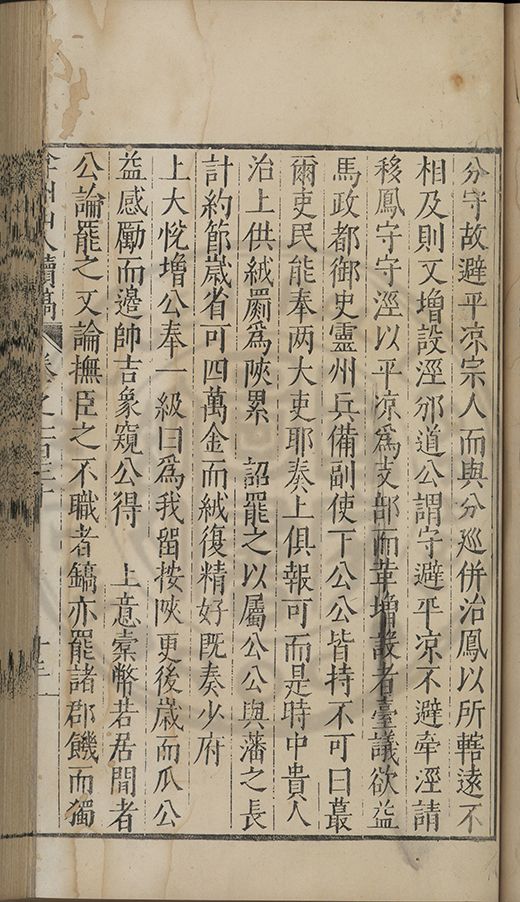 分守故避平涼宗人而與分廵併治鳳以所轄遠不
相及則又增設涇邠道公謂守避平涼不避牽涇請
移鳳守守涇以平涼爲支部而革增設者臺議欲益
馬政都御史靈州兵備副使下公公皆持不可曰蕞
爾吏民能奉两大吏耶奏上俱報可而是時中貴人
治上供絨罽爲陜累 詔罷之以屬公公與藩之長
計約節歲省可四萬金而絨復精好旣奏少府
上大悅增公奉一級曰爲我畱按陜更後歲而瓜公
益感勵而邉帥吉象窺公得 上意槖幣若居間者
公論罷之又論撫臣之不職者鐫亦罷諸郡饑而獨
弇州山人續稿 卷之一百三十 十二